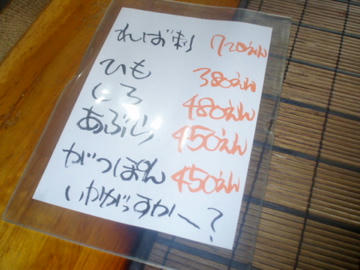 ればま刺 720えん
ひも 380えん
しろ 480えん
あぶり 450えん
がつぽん 450えん
いかがっすかー?